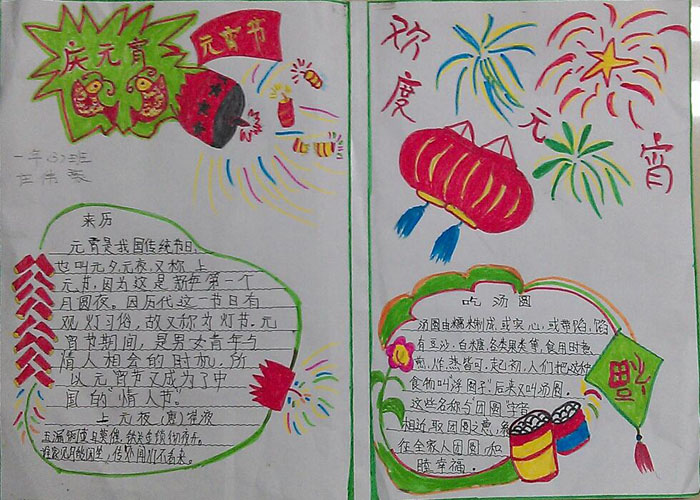 庆元宵
元宵节
一年(3)班
来历
元宵是我国传统节日,
也叫元夕、元夜、又称上
元节,因为这是新年第一个
月圆夜。因历代这一节日有
观灯习俗,故又称为灯节。元
宵节期间,是男女青年与
情人相会的时机,所
以元宵节又成为了中
国的"情人节。
上元夜(唐)崔液
欢度
元
宵
吃汤圆
汤圆由糯米制成,或实心,或带馅,馅
有豆沙、白糖、各类果类等,食用时煮、
煎、炸、蒸皆可,起初,人们把这种
食物叫浮圆子"后来又叫汤圆。
这些名称与"团圆"字音
相近,取团圆之意,
在全家人团圆和
睦幸福。
福